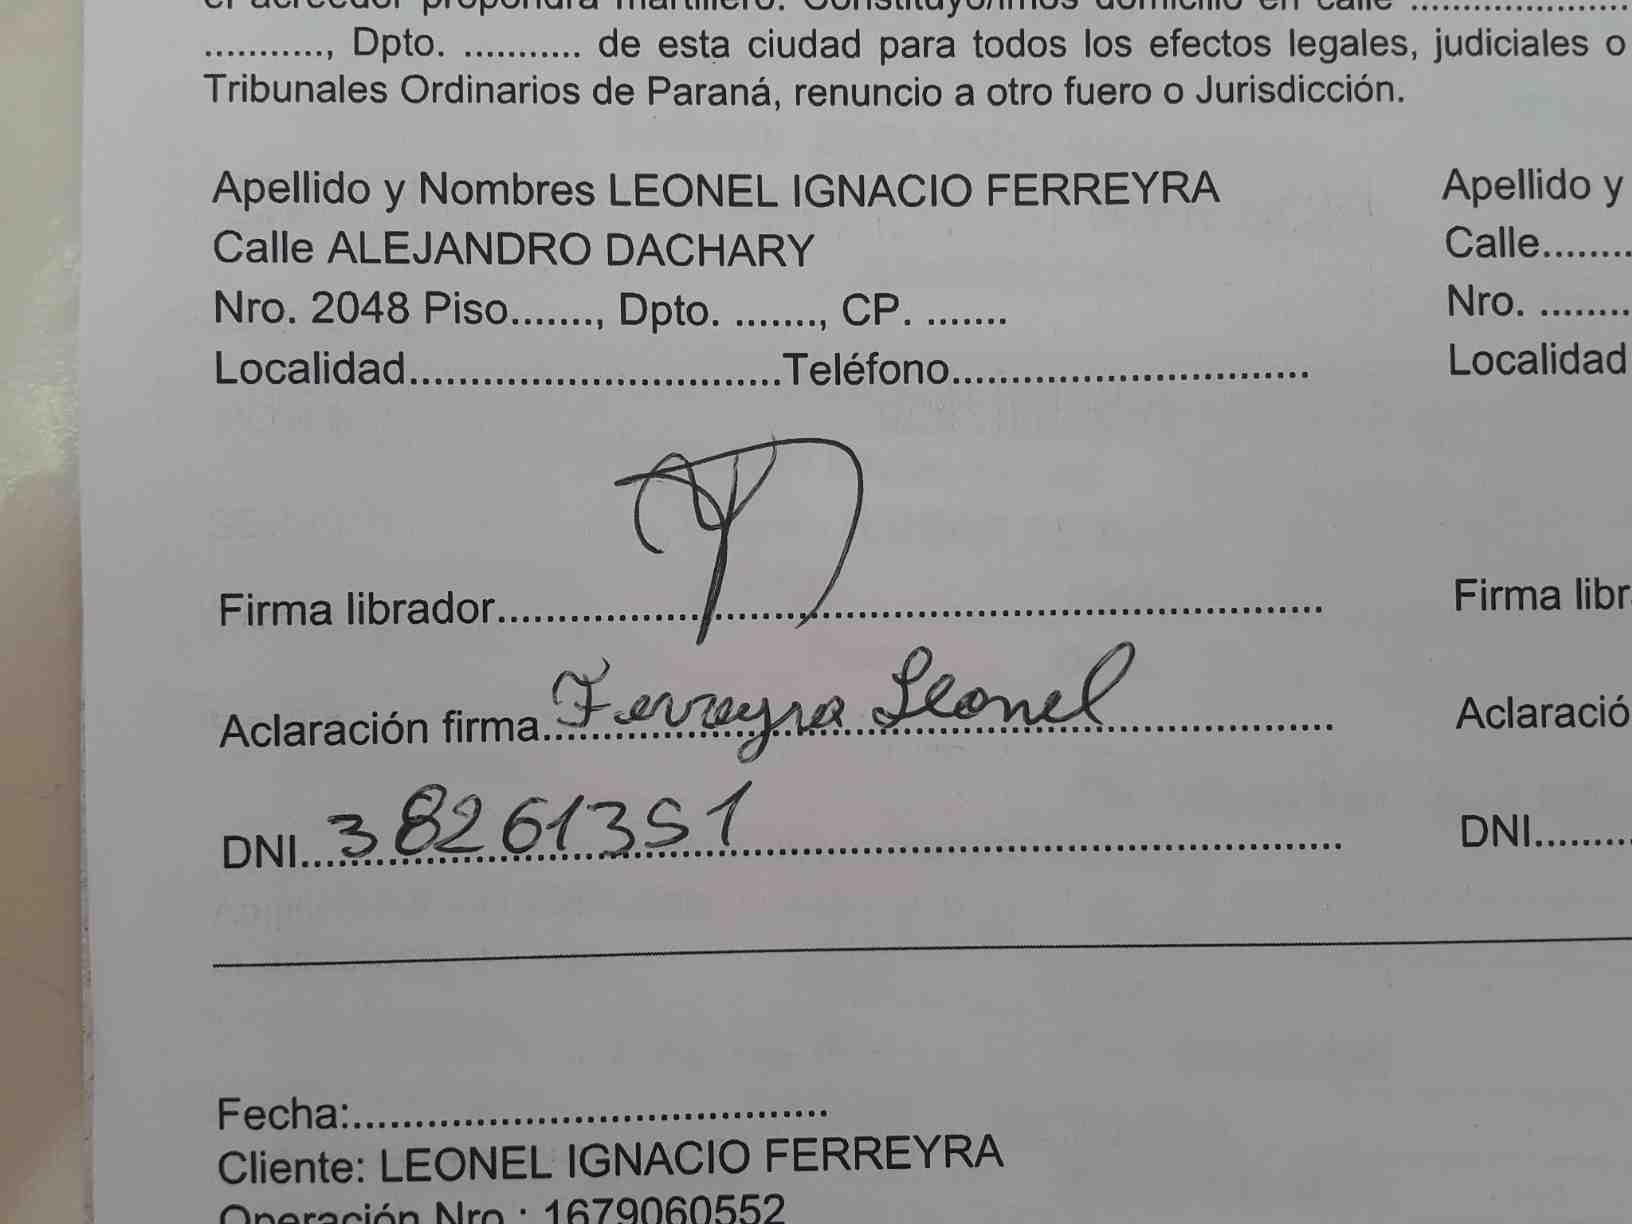 el acreedor propondrá martillero. Constituyo/imos domicilio en calle ........................
..........., Dpto. ........... de esta ciudad para todos los efectos legales, judiciales o
Tribunales Ordinarios de Paraná, renuncio a otro fuero o Jurisdicción.
Apellido y Nombres LEONEL IGNACIO FERREYRA
Calle ALEJANDRO DACHARY
Nro. 2048 Piso......., Dpto. ......., CP. .......
Localidad..............................Teléfono..............................
Firma librador....................................................................
Aclaración firma. Ferreyra Leonel
DNI... 38261351
Apellido y
Calle........
Nro. ........
Localidad
Firma libr
Aclaració
DNI........
Fecha:.......................................
Cliente: LEONEL IGNACIO FERREYRA
Operación Nro.: 1679060552